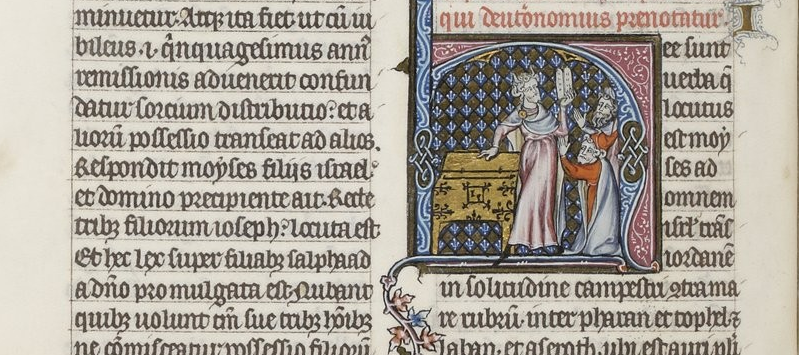 minuetur. Atq; ita fiet. ut cū iu
bileus .i. q̄nquagesimus ann
remissionis aduenerit confun
datur sorcium distributio: et a
liorū possessio transeat ad alios.
Respondit moyses filiis israel:
et domino precipiente ait. Recte
tribꝫ filiorum ioseph: locuta est
Et hec lex super filiabꝫ salphaad
a dn̄o promulgata est. Nubant
quibꝫ uolunt tm̄ sue tribꝫ hōībꝫ
ne cōmisceatur possessio filiorū
qui deutōnomius prenotatur.
H
ec sunt
uerba q̄
locutus
est moy
ses ad
omnem
isrl' trās
iordanē
in solitudine campestri ꝯtra ma
re rubrū. inter pharan et tophel ⁊
laban. et aseroth. ubi est auri